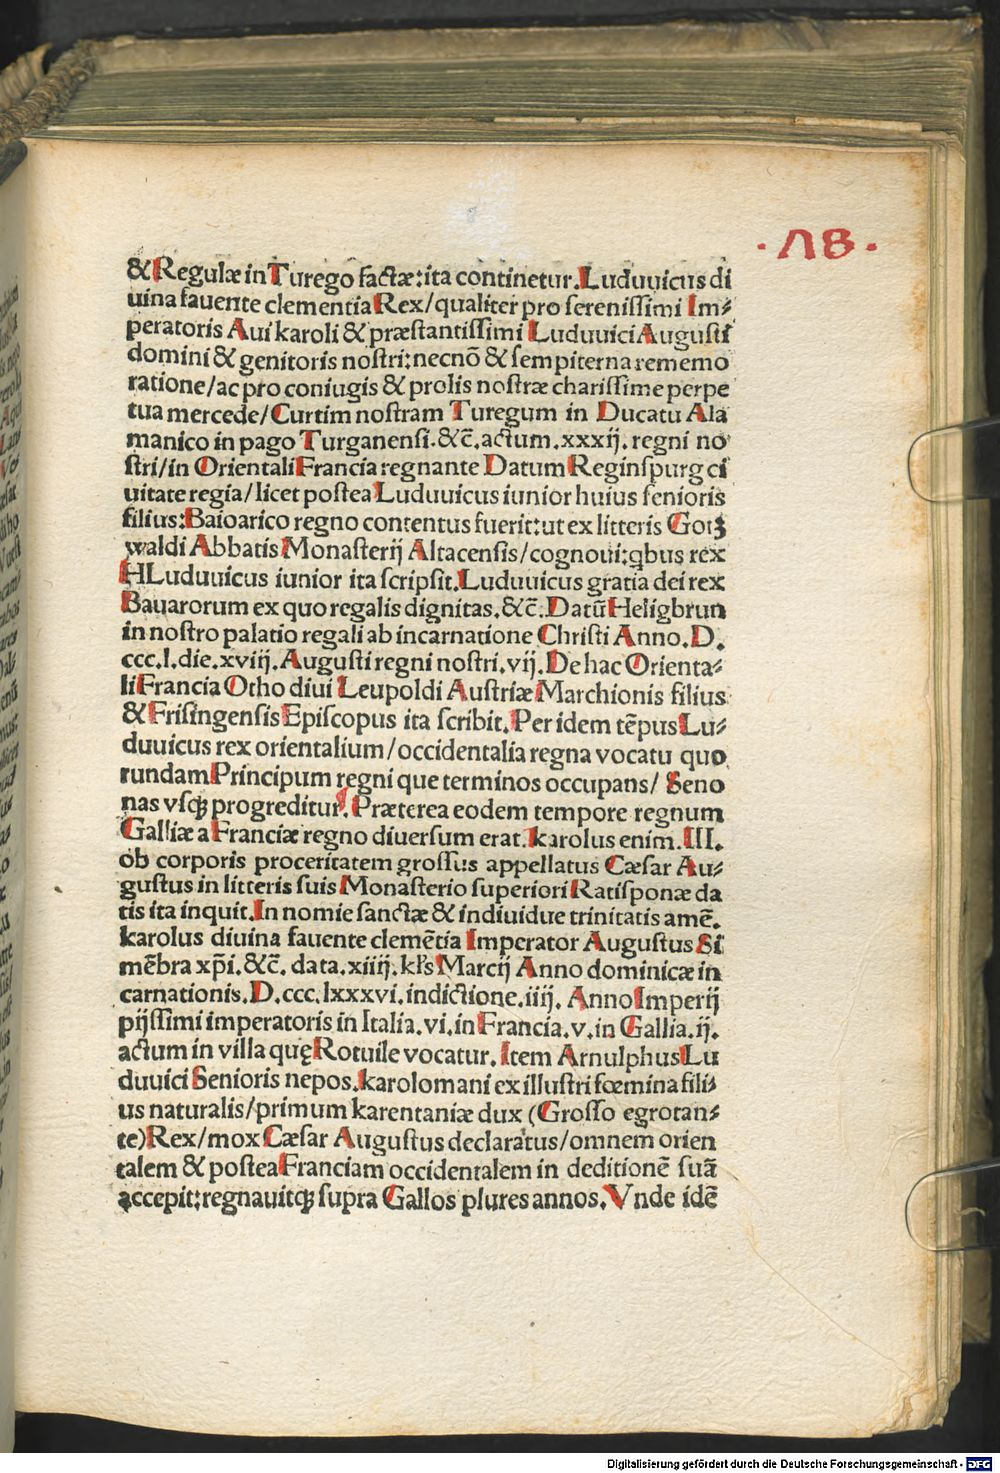 ·Λ8·
& Regulæ in Turego factæ: ita continetur. Luduuicus di
uina fauente clementia Rex/ qualiter pro serenissimi Im⸗
peratoris Aui karoli & præstantissimi Luduuici Augusti
domini & genitoris nostri: necnō & sempiterna rememo
ratione/ ac pro coniugis & prolis nostræ charissime perpe
tua mercede/ Curtim nostram Turegum in Ducatu Ala
manico in pago Turganensi. &c̄. actum. xxxij. regni no
stri/ in Orientali Francia regnante Datum Reginspurg ci
uitate regia/ licet postea Luduuicus iunior huius senioris
filius: Baioarico regno contentus fuerit: ut ex litteris Gotz
waldi Abbatis Monasterij Altacensis/ cognoui: qbus rex
HLuduuicus iunior ita scripsit. Luduuicus gratia dei rex
Bauarorum ex quo regalis dignitas. &c̄. Datū Heligbrun
in nostro palatio regali ab incarnatione Christi Anno. D.
ccc. l. die. xviij. Augusti regni nostri. vij. De hac Orienta⸗
li Francia Otho diui Leupoldi Austriæ Marchionis filius
& Frisingensis Episcopus ita scribit. Per idem tēpus Lu⸗
duuicus rex orientalium/ occidentalia regna vocatu quo
rundam Principum regni que terminos occupans/ Seno
nas vsqꝫ progreditur. Præterea eodem tempore regnum
Galliæ a Franciæ regno diuersum erat. karolus enim. III.
ob corporis proceritatem grossus appellatus Cæsar Au⸗
gustus in litteris suis Monasterio superiori Ratisponæ da
tis ita inquit. In nomie sanctæ & indiuidue trinitatis amē.
karolus diuina fauente clemētia Imperator Augustus Si
mēbra xp̄i. &c̄. data. xiiij. kl's Marcij Anno dominicæ in
carnationis. D. ccc. lxxxvi. indictione. iiij. Anno Imperij
pijssimi imperatoris in Italia. vi. in Francia. v. in Gallia. ij.
actum in villa quę Rotuile vocatur. Item Arnulphus Lu
duuici Senioris nepos. karolomani ex illustri fœmina fili⸗
us naturalis/ primum karentaniæ dux (Grosso egrotan⸗
te) Rex/ mox Cæsar Augustus declaratus/ omnem orien
talem & postea Franciam occidentalem in deditionē suā
accepit: regnauitqꝫ supra Gallos plures annos. Vnde idē
Digitalisierung gefördert durch die Deutsche Forschungsgemeinschaft - DFG